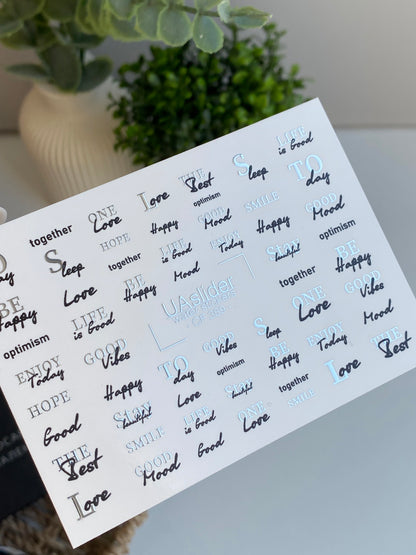 together
ONE
Love
Love
THE
Best
Sleep
LIFE
is Good
Sleep
HOPE
Happy
optimism
SMILE
TO
day
together
GOOD
Mood
BE
Happy
Love
LIFE
is Good
ENJOY
Today
Happy
GOOD
Mood
BE
Happy
Mood
STAY
beautiful
optimism
optimism
LIFE
is Good
UAslider
together
BE
Happy
ENJOY
Today
GOOD
Vibes
Sleep
ONE
Love
GOOD
Vibes
HOPE
Happy
TO
day
GOOD
Vibes
BE
Happy
ENJOY
Today
Mood
Good
STAY
beautiful
Love
STAY
beautiful
together
Love
THE
Best
THE
Best
SMILE
LIFE
is Good
ONE
Love
SMILE
Love
GOOD
Mood
Good